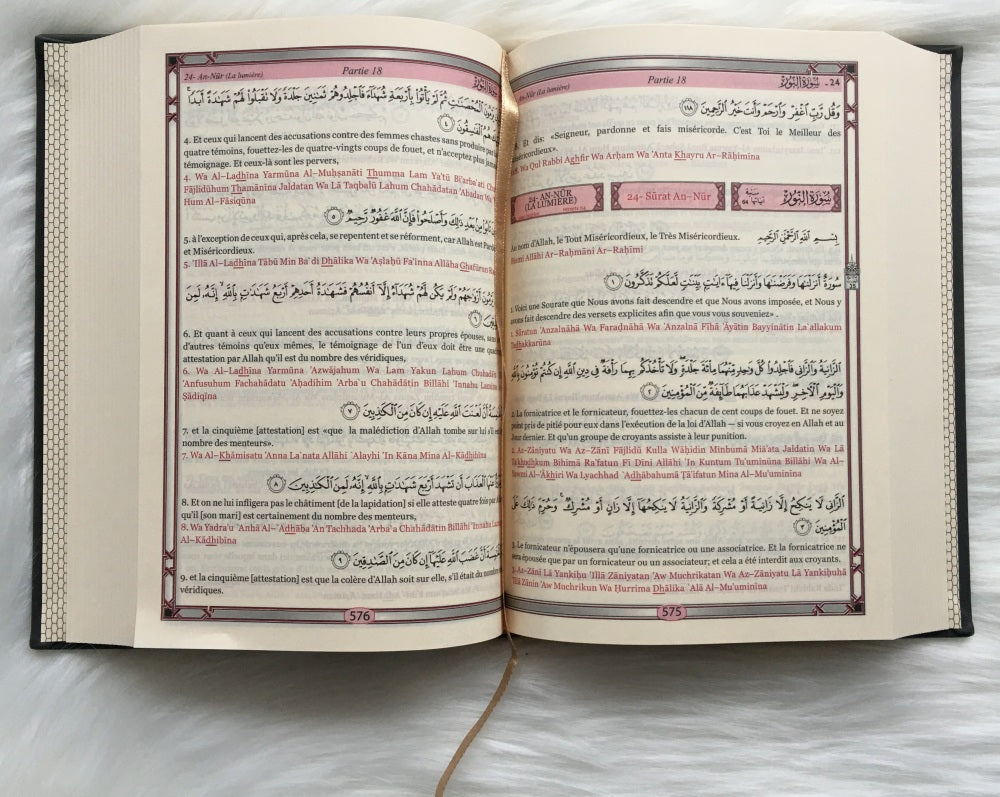 Partie 18
24 - سُورَةُ النُّورِ
An-Nūr (La lumière)
وَقُل رَّبِّ اغْفِرْ وَارْحَمْ وَأَنتَ خَيْرُ الرَّاحِمِينَ ١١٨
Et dis: «Seigneur, pardonne et fais miséricorde. C'est Toi le Meilleur des
miséricordieux».
Wa Qul Rabbi Aghfir Wa Arḥam Wa 'Anta Khayru Ar–Rāḥimīna
24- AN-NŪR
(LA LUMIÈRE)
24- Sūrat An–Nūr
سُورَةُ النُّورِ
بِسْمِ اللَّهِ الرَّحْمَٰنِ الرَّحِيمِ
Au nom d'Allah, le Tout Miséricordieux, le Très Miséricordieux.
Bismi Allāhi Ar–Raḥmāni Ar–Raḥīmi
سُورَةٌ أَنزَلْنَاهَا وَفَرَضْنَاهَا وَأَنزَلْنَا فِيهَا آيَاتٍ بَيِّنَاتٍ لَّعَلَّكُمْ تَذَكَّرُونَ ١
1. Voici une Sourate que Nous avons fait descendre et que Nous avons imposée, et Nous y
avons fait descendre des versets explicites afin que vous vous souveniez» .
1. Sūratun 'Anzalnāhā Wa Faraḍnāhā Wa 'Anzalnā Fīhā 'Āyātin Bayyinātin La`allakum
Tadhakkarūna
الزَّانِيَةُ وَالزَّانِي فَاجْلِدُوا كُلَّ وَاحِدٍ مِّنْهُمَا مِائَةَ جَلْدَةٍ وَلَا تَأْخُذْكُم بِهِمَا رَأْفَةٌ فِي دِينِ اللَّهِ إِن كُنتُمْ تُؤْمِنُونَ بِاللَّهِ
وَالْيَوْمِ الْآخِرِ وَلْيَشْهَدْ عَذَابَهُمَا طَائِفَةٌ مِّنَ الْمُؤْمِنِينَ ٢
2. La fornicatrice et le fornicateur, fouettez-les chacun de cent coups de fouet. Et ne soyez
point pris de pitié pour eux dans l'exécution de la loi d'Allah – si vous croyez en Allah et au
Jour dernier. Et qu'un groupe de croyants assiste à leur punition.
2. Az–Zāniyatu Wa Az–Zānī Fājlidū Kulla Wāḥidin Minhumā Miā'ata Jaldatin Wa Lā
Ta'khudhkum Bihimā Ra'fatun Fī Dīni Allāhi 'In Kuntum Tu'uminūna Billāhi Wa Al–
Yawmi Al–'Ākhiri Wa Lyachhad `Adhābahumā Ṭā'ifatun Mina Al–Mu'uminīna
الزَّانِي لَا يَنكِحُ إِلَّا زَانِيَةً أَوْ مُشْرِكَةً وَالزَّانِيَةُ لَا يَنكِحُهَا إِلَّا زَانٍ أَوْ مُشْرِكٌ وَحُرِّمَ ذَٰلِكَ عَلَى
الْمُؤْمِنِينَ ٣
3. Le fornicateur n'épousera qu'une fornicatrice ou une associatrice. Et la fornicatrice ne
sera épousée que par un fornicateur ou un associateur; et cela a été interdit aux croyants.
3. Az–Zānī Lā Yankiḥu 'Illā Zāniyatan 'Aw Muchrikatan Wa Az–Zāniyatu Lā Yankiḥuhā
'Illā Zānin 'Aw Muchrikun Wa Ḥurrima Dhālika `Alá Al–Mu'uminīna
575
24- An-Nūr (La lumière)
Partie 18
يَرْمُونَ الْمُحْصَنَاتِ ثُمَّ لَمْ يَأْتُوا بِأَرْبَعَةِ شُهَدَاءَ فَاجْلِدُوهُمْ ثَمَانِينَ جَلْدَةً وَلَا تَقْبَلُوا لَهُمْ شَهَادَةً أَبَدًا
هُمُ الْفَاسِقُونَ ٤
4. Et ceux qui lancent des accusations contre des femmes chastes sans produire par
quatre témoins, fouettez-les de quatre-vingts coups de fouet, et n'acceptez plus jamais
témoignage. Et ceux-là sont les pervers,
4. Wa Al–Ladhīna Yarmūna Al–Muḥşanāti Thumma Lam Ya'tū Bi'arba`ati
Fājlidūhum Thamānīna Jaldatan Wa Lā Taqbalū Lahum Chahādatan 'Abadan Wa
Hum Al–Fāsiqūna
تَابُوا مِن بَعْدِ ذَٰلِكَ وَأَصْلَحُوا فَإِنَّ اللَّهَ غَفُورٌ رَّحِيمٌ ٥
5. à l'exception de ceux qui, après cela, se repentent et se réforment, car Allah est
et Miséricordieux.
5. 'Illā Al–Ladhīna Tābū Min Ba`di Dhālika Wa 'Aşlaḥū Fa'inna Allāha Ghafūrun
يَرْمُونَ أَزْوَاجَهُمْ وَلَمْ يَكُن لَّهُمْ شُهَدَاءُ إِلَّا أَنفُسُهُمْ فَشَهَادَةُ أَحَدِهِمْ أَرْبَعُ شَهَادَاتٍ بِاللَّهِ إِنَّهُ لَمِنَ
٦
6. Et quant à ceux qui lancent des accusations contre leurs propres épouses, sans
d'autres témoins qu'eux mêmes, le témoignage de l'un d'eux doit être une
attestation par Allah qu'il est du nombre des véridiques,
6. Wa Al–Ladhīna Yarmūna 'Azwājahum Wa Lam Yakun Lahum
'Anfusuhum Fachahādatu 'Aḥadihim 'Arba`u Chahādātin Billāhi 'Innahu Lamina
Şādiqīna
أَنَّ لَعْنَتَ اللَّهِ عَلَيْهِ إِن كَانَ مِنَ الْكَاذِبِينَ ٧
7. et la cinquième [attestation] est «que la malédiction d'Allah tombe sur lui s'il
nombre des menteurs».
7. Wa Al–Khāmisatu 'Anna La`nata Allāhi `Alayhi 'In Kāna Mina Al–Kādhibīna
عَنْهَا الْعَذَابَ أَن تَشْهَدَ أَرْبَعَ شَهَادَاتٍ بِاللَّهِ إِنَّهُ لَمِنَ الْكَاذِبِينَ ٨
8. Et on ne lui infligera pas le châtiment [de la lapidation] si elle atteste quatre fois par
qu'il [son mari] est certainement du nombre des menteurs,
8. Wa Yadra'u `Anhā Al–`Adhāba 'An Tachhada 'Arba`a Chahādātin Billāhi 'Innahu
Al–Kādhibīna
أَنَّ غَضَبَ اللَّهِ عَلَيْهَا إِن كَانَ مِنَ الصَّادِقِينَ ٩
9. et la cinquième [attestation] est que la colère d'Allah soit sur elle, s'il était du nombre
véridiques.
576